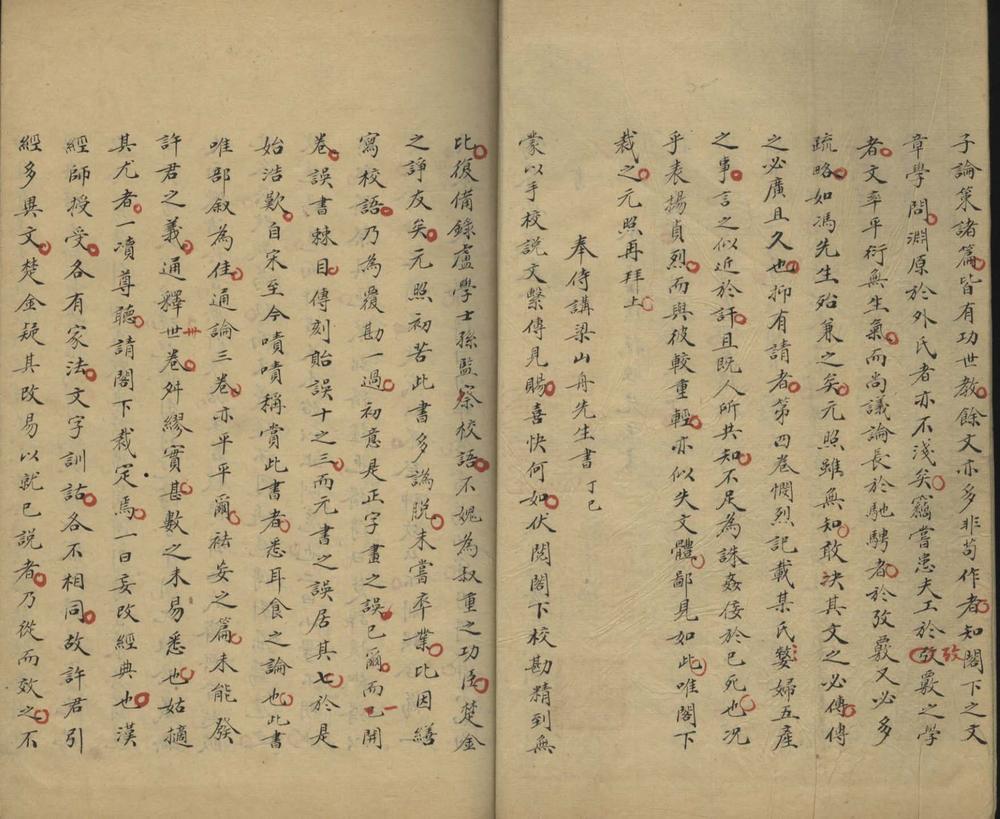 子論策諸篇皆有功世教餘文亦多非苟作者知閣下之文
章學問淵原於外氏者亦不淺矣竊嘗患夫工於攷覈之學
攷
者文率平衍無生氣而尚議論長於馳騁者於攷覈又必多
疏略如馮先生殆兼之矣元照雖無知敢決其文之必傳傳
之必廣且久也抑有請者第四卷憫烈記載某氏嫠婦五產
之事言之似近於訐且既人所共知不足為誅姦佞於已死也況
乎表揚貞烈而與彼較重輕亦似失文體鄙見如此唯閣下
裁之元照再拜上
奉侍講梁山舟先生書 丁巳
蒙以手校說文繫傳見賜喜快何如伏閱閣下校勘精到無
比復備錄盧學士孫監察校語不媿為叔重之功臣楚金
之諍友矣元照初苦此書多譌脫未嘗卒業比因繕
寫校語乃為覆勘一過初意是正字畫之誤已爾而已開
卷誤書棘目傳刻貽誤十之三而元書之誤居其七於是
始浩歎自宋至今嘖嘖稱賞此書者悉耳食之論也此書
唯部敘為佳通論三卷亦平平爾袪妄之篇未能發
許君之義通釋世卷舛繆實甚數之未易悉也姑擿
卅
其尤者一瀆尊聽請閣下裁定焉一曰妄改經典也漢
經師授受各有家法文字訓詁各不相同故許君引
經多異文楚金疑其改易以就己說者乃從而效之不